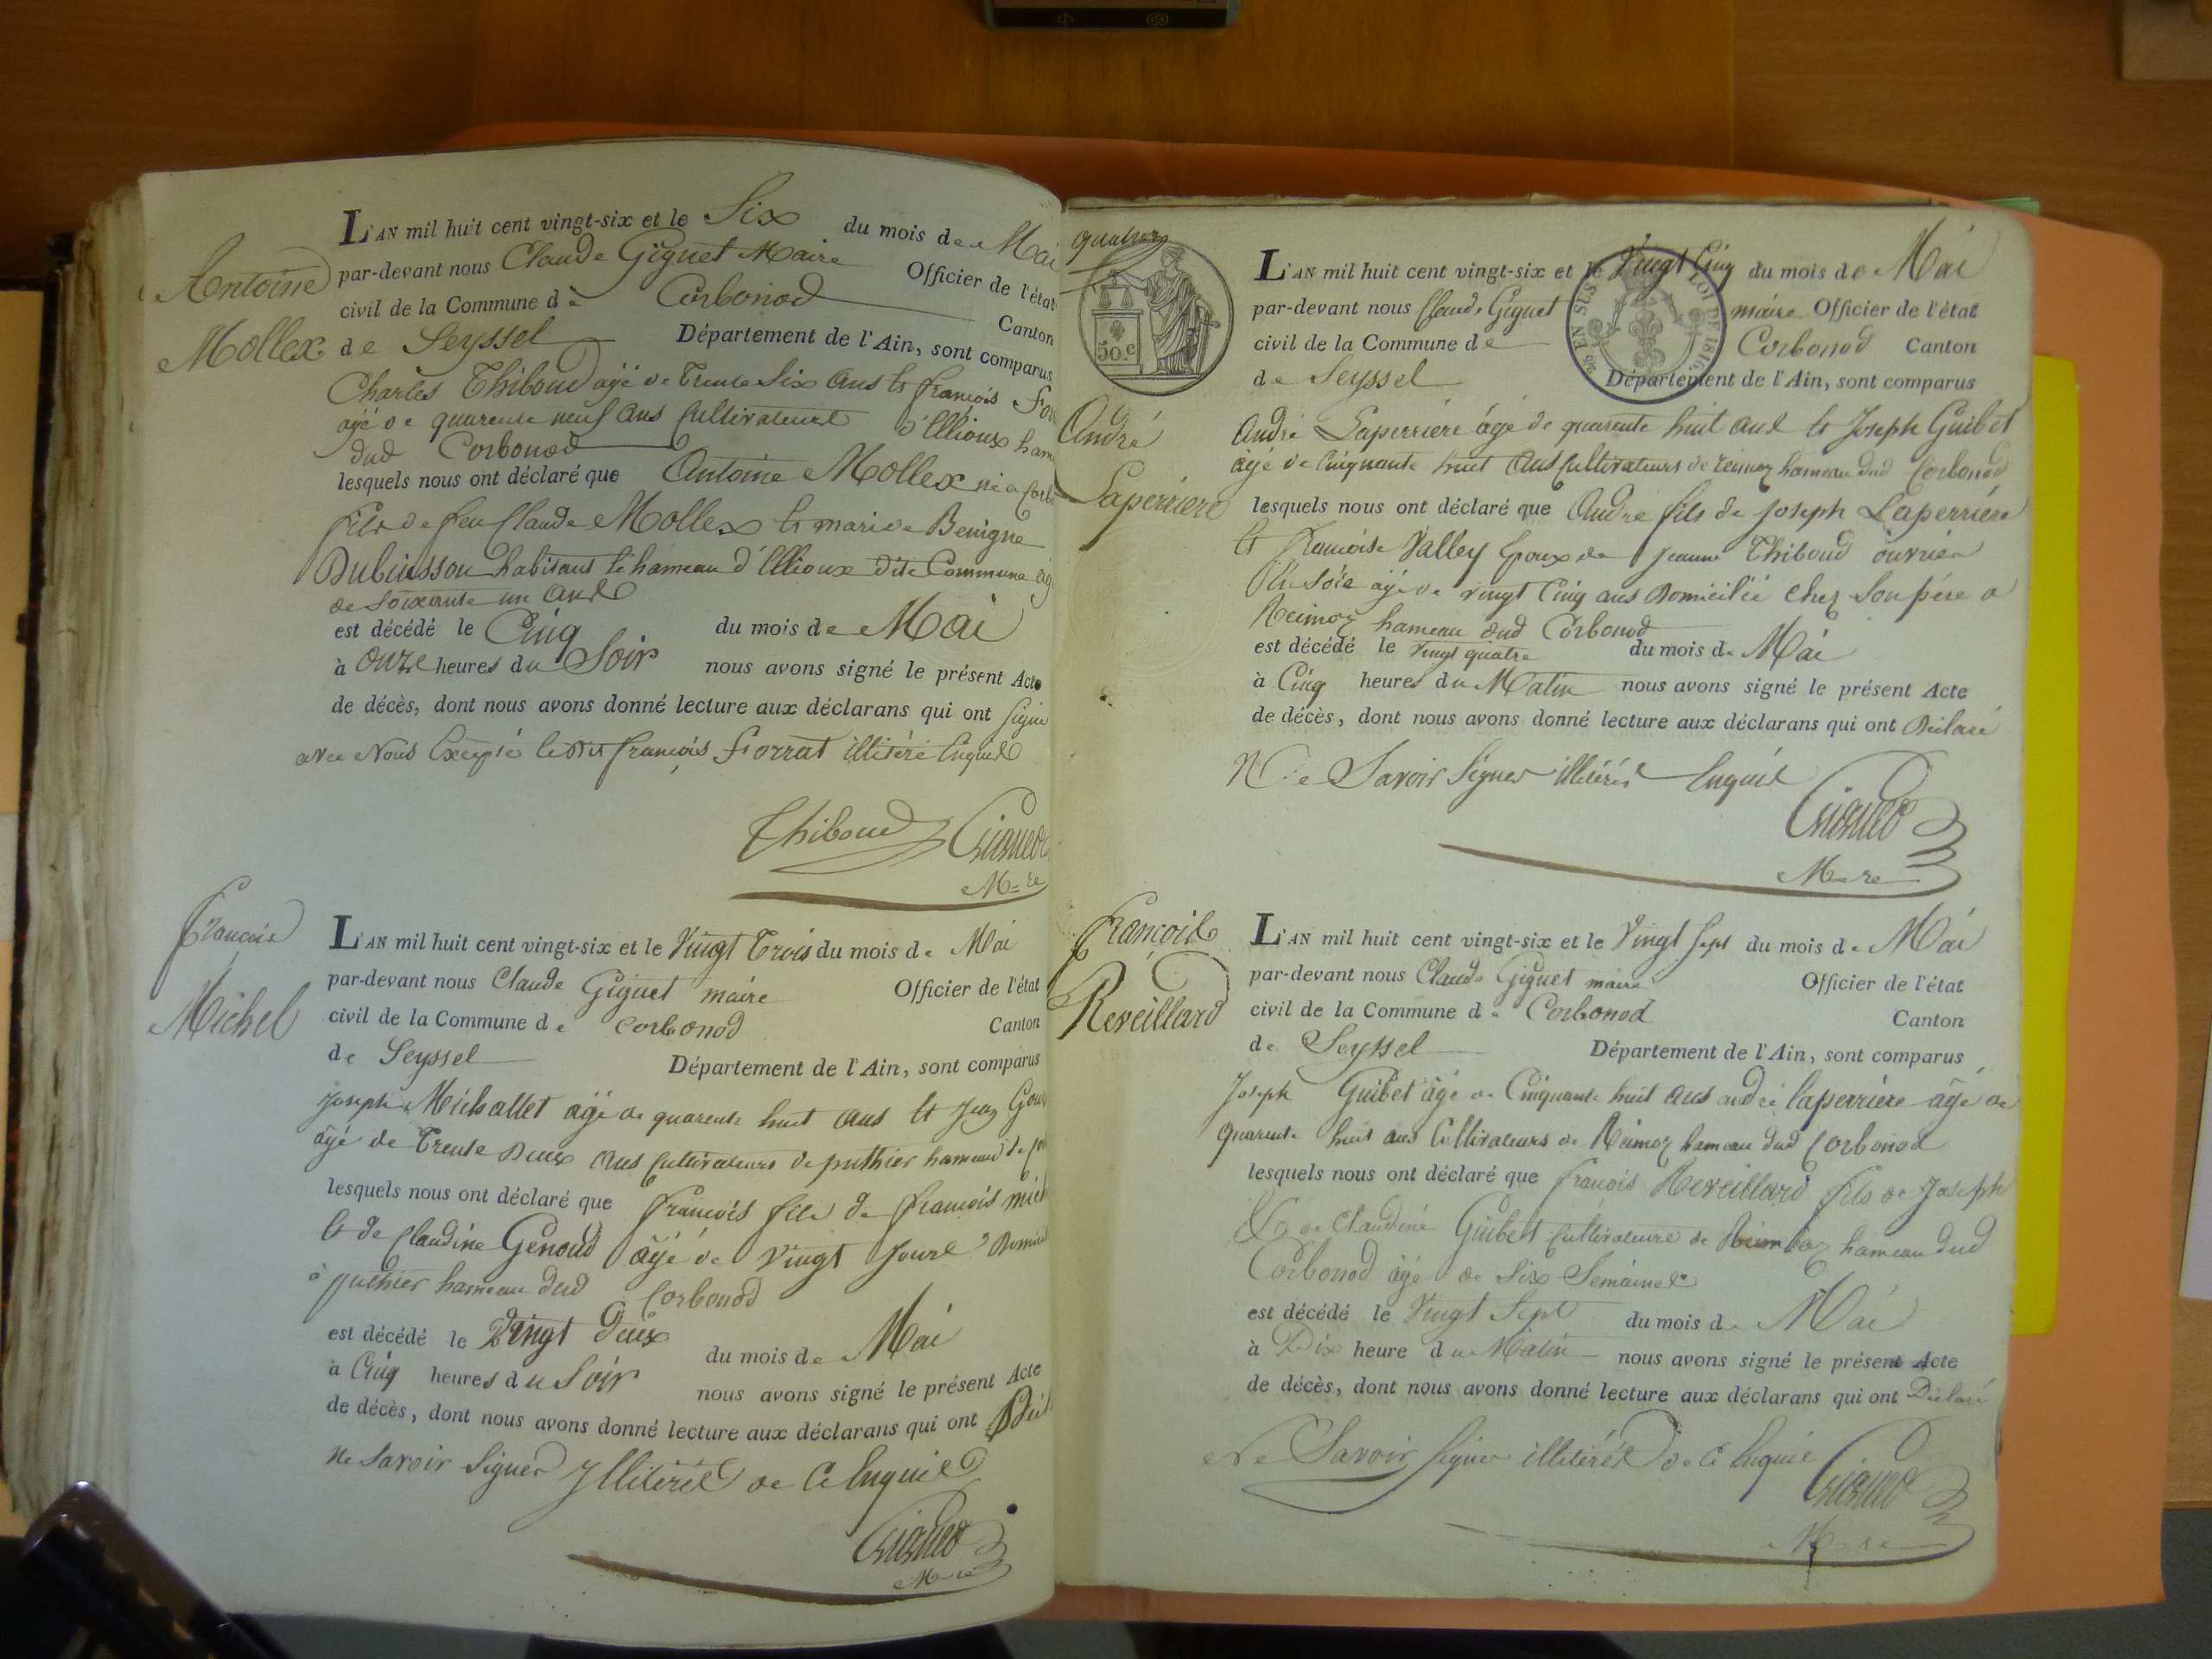 Antoine
Mollex
L'AN mil huit cent vingt-six et le Six du mois de Mai
par-devant nous Claude Giguet Maire Officier de l'état
civil de la Commune de Corbonod Canton
de Seyssel Département de l'Ain, sont comparus
Charles Thiboud agé de trente Six ans et françois
agé de quarente neuf ans Cultivateurs d'Ellioux
dud Corbonod
lesquels nous ont déclaré que Antoine Mollex né a
fils de feu Claude Mollex et mari de Benigne
Dubuisson habitant le hameau d'Ellioux dite Commune
de soixante un ans
est décédé le Cinq du mois de Mai
à onze heures du Soir nous avons signé le présent Acte
de décès, dont nous avons donné lecture aux déclarans qui ont signé
avec Nous Excepté le dit françois Forrat illitéré Enquis
Thiboud Giguet
M.re
François
Michel
L'AN mil huit cent vingt-six et le Vingt Trois du mois de Mai
par-devant nous Claude Giguet maire Officier de l'état
civil de la Commune de Corbonod Canton
de Seyssel Département de l'Ain, sont comparus
Joseph Michallet agé de quarente huit ans et Jean
âgé de Trente Deux ans Cultivateurs de puthier hameau
lesquels nous ont déclaré que françois fils de françois
et de Claudine Genoud âgé de Vingt Jours
à puthier hameau dud Corbonod
est décédé le Vingt Deux du mois de Mai
à Cinq heures du Soir nous avons signé le présent Acte
de décès, dont nous avons donné lecture aux déclarans qui ont
ne Savoir Signer Illitérés de Ce Enquis
Giguet
M.re
quatorze
50.c
EN SUS LOI DE 1816.
André
Laperrière
L'AN mil huit cent vingt-six et le Vingt Cinq du mois de Mai
par-devant nous Claude Giguet maire Officier de l'état
civil de la Commune de Corbonod Canton
de Seyssel Département de l'Ain, sont comparus
André Laperrière âgé de quarente huit ans et Joseph Guibet
âgé de Cinquante huit ans Cultivateurs de reimoz hameau dud Corbonod
lesquels nous ont déclaré que André fils de Joseph Laperrière
et françoise Valley Epoux de Jeanne Thiboud ouvrier
soie âgé de vingt Cinq ans Domicilié chez son père a
Reimoz hameau dud Corbonod
est décédé le vingt quatre du mois de Mai
à Cinq heures du Matin nous avons signé le présent Acte
de décès, dont nous avons donné lecture aux déclarans qui ont Déclaré
Ne Savoir Signer illitérés Enquis
Giguet
M.re
François
Reveillard
L'AN mil huit cent vingt-six et le Vingt Sept du mois de Mai
par-devant nous Claude Giguet maire Officier de l'état
civil de la Commune de Corbonod Canton
de Seyssel Département de l'Ain, sont comparus
Joseph Guibet âgé de Cinquante huit ans andré laperrière âgé de
quarente huit ans Cultivateurs de Reimoz hameau dud Corbonod
lesquels nous ont déclaré que françois Reveillard fils de Joseph
& de Claudine Guibet Cultivateurs de hameau dud
Corbonod âgé de Six Semaines
est décédé le Vingt Sept du mois de Mai
à Dix heure du Matin nous avons signé le présent Acte
de décès, dont nous avons donné lecture aux déclarans qui ont Déclaré
Ne Savoir Signer illitérés de Ce Enquis
Giguet
M.re